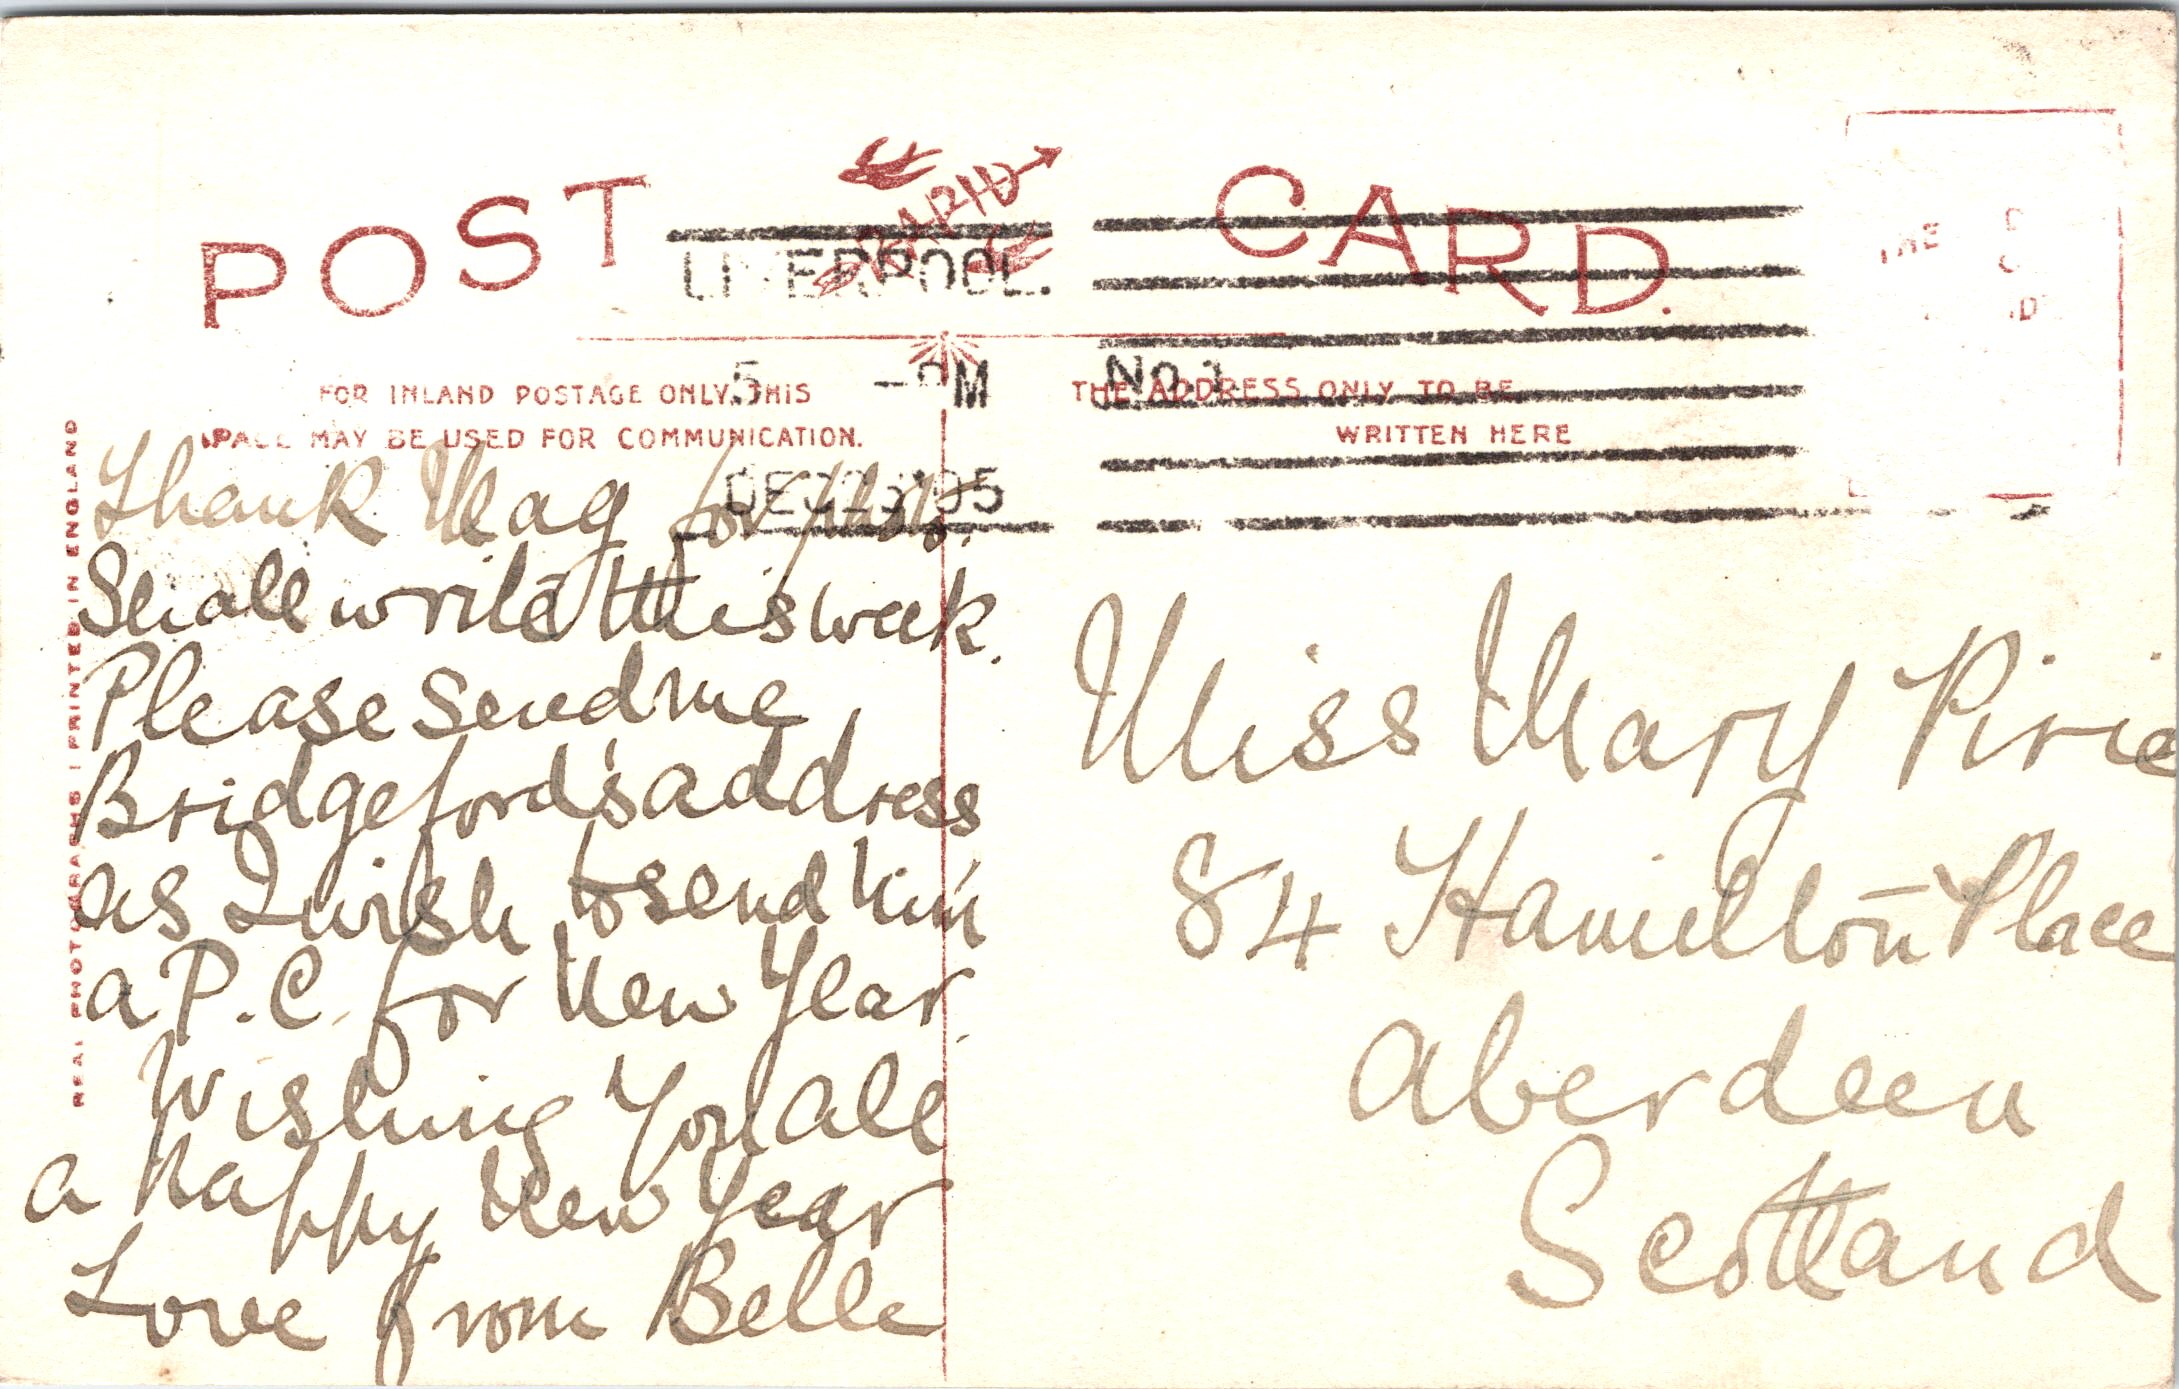 POST CARD.
RAPID
LIVERPOOL.
5 - PM No.1
DEC 25 '05
FOR INLAND POSTAGE ONLY, THIS
SPACE MAY BE USED FOR COMMUNICATION.
THE ADDRESS ONLY TO BE
WRITTEN HERE
REAL PHOTOGRAPHS PRINTED IN ENGLAND
THE
Thank Mag for
Shall write this week.
Please send me
Bridgeford's address
as I wish to send him
a P.C. for New Year.
Wishing You all
a happy New Year
Love from Belle
Miss Mary Pirie
84 Hamilton Place
Aberdeen
Scotland